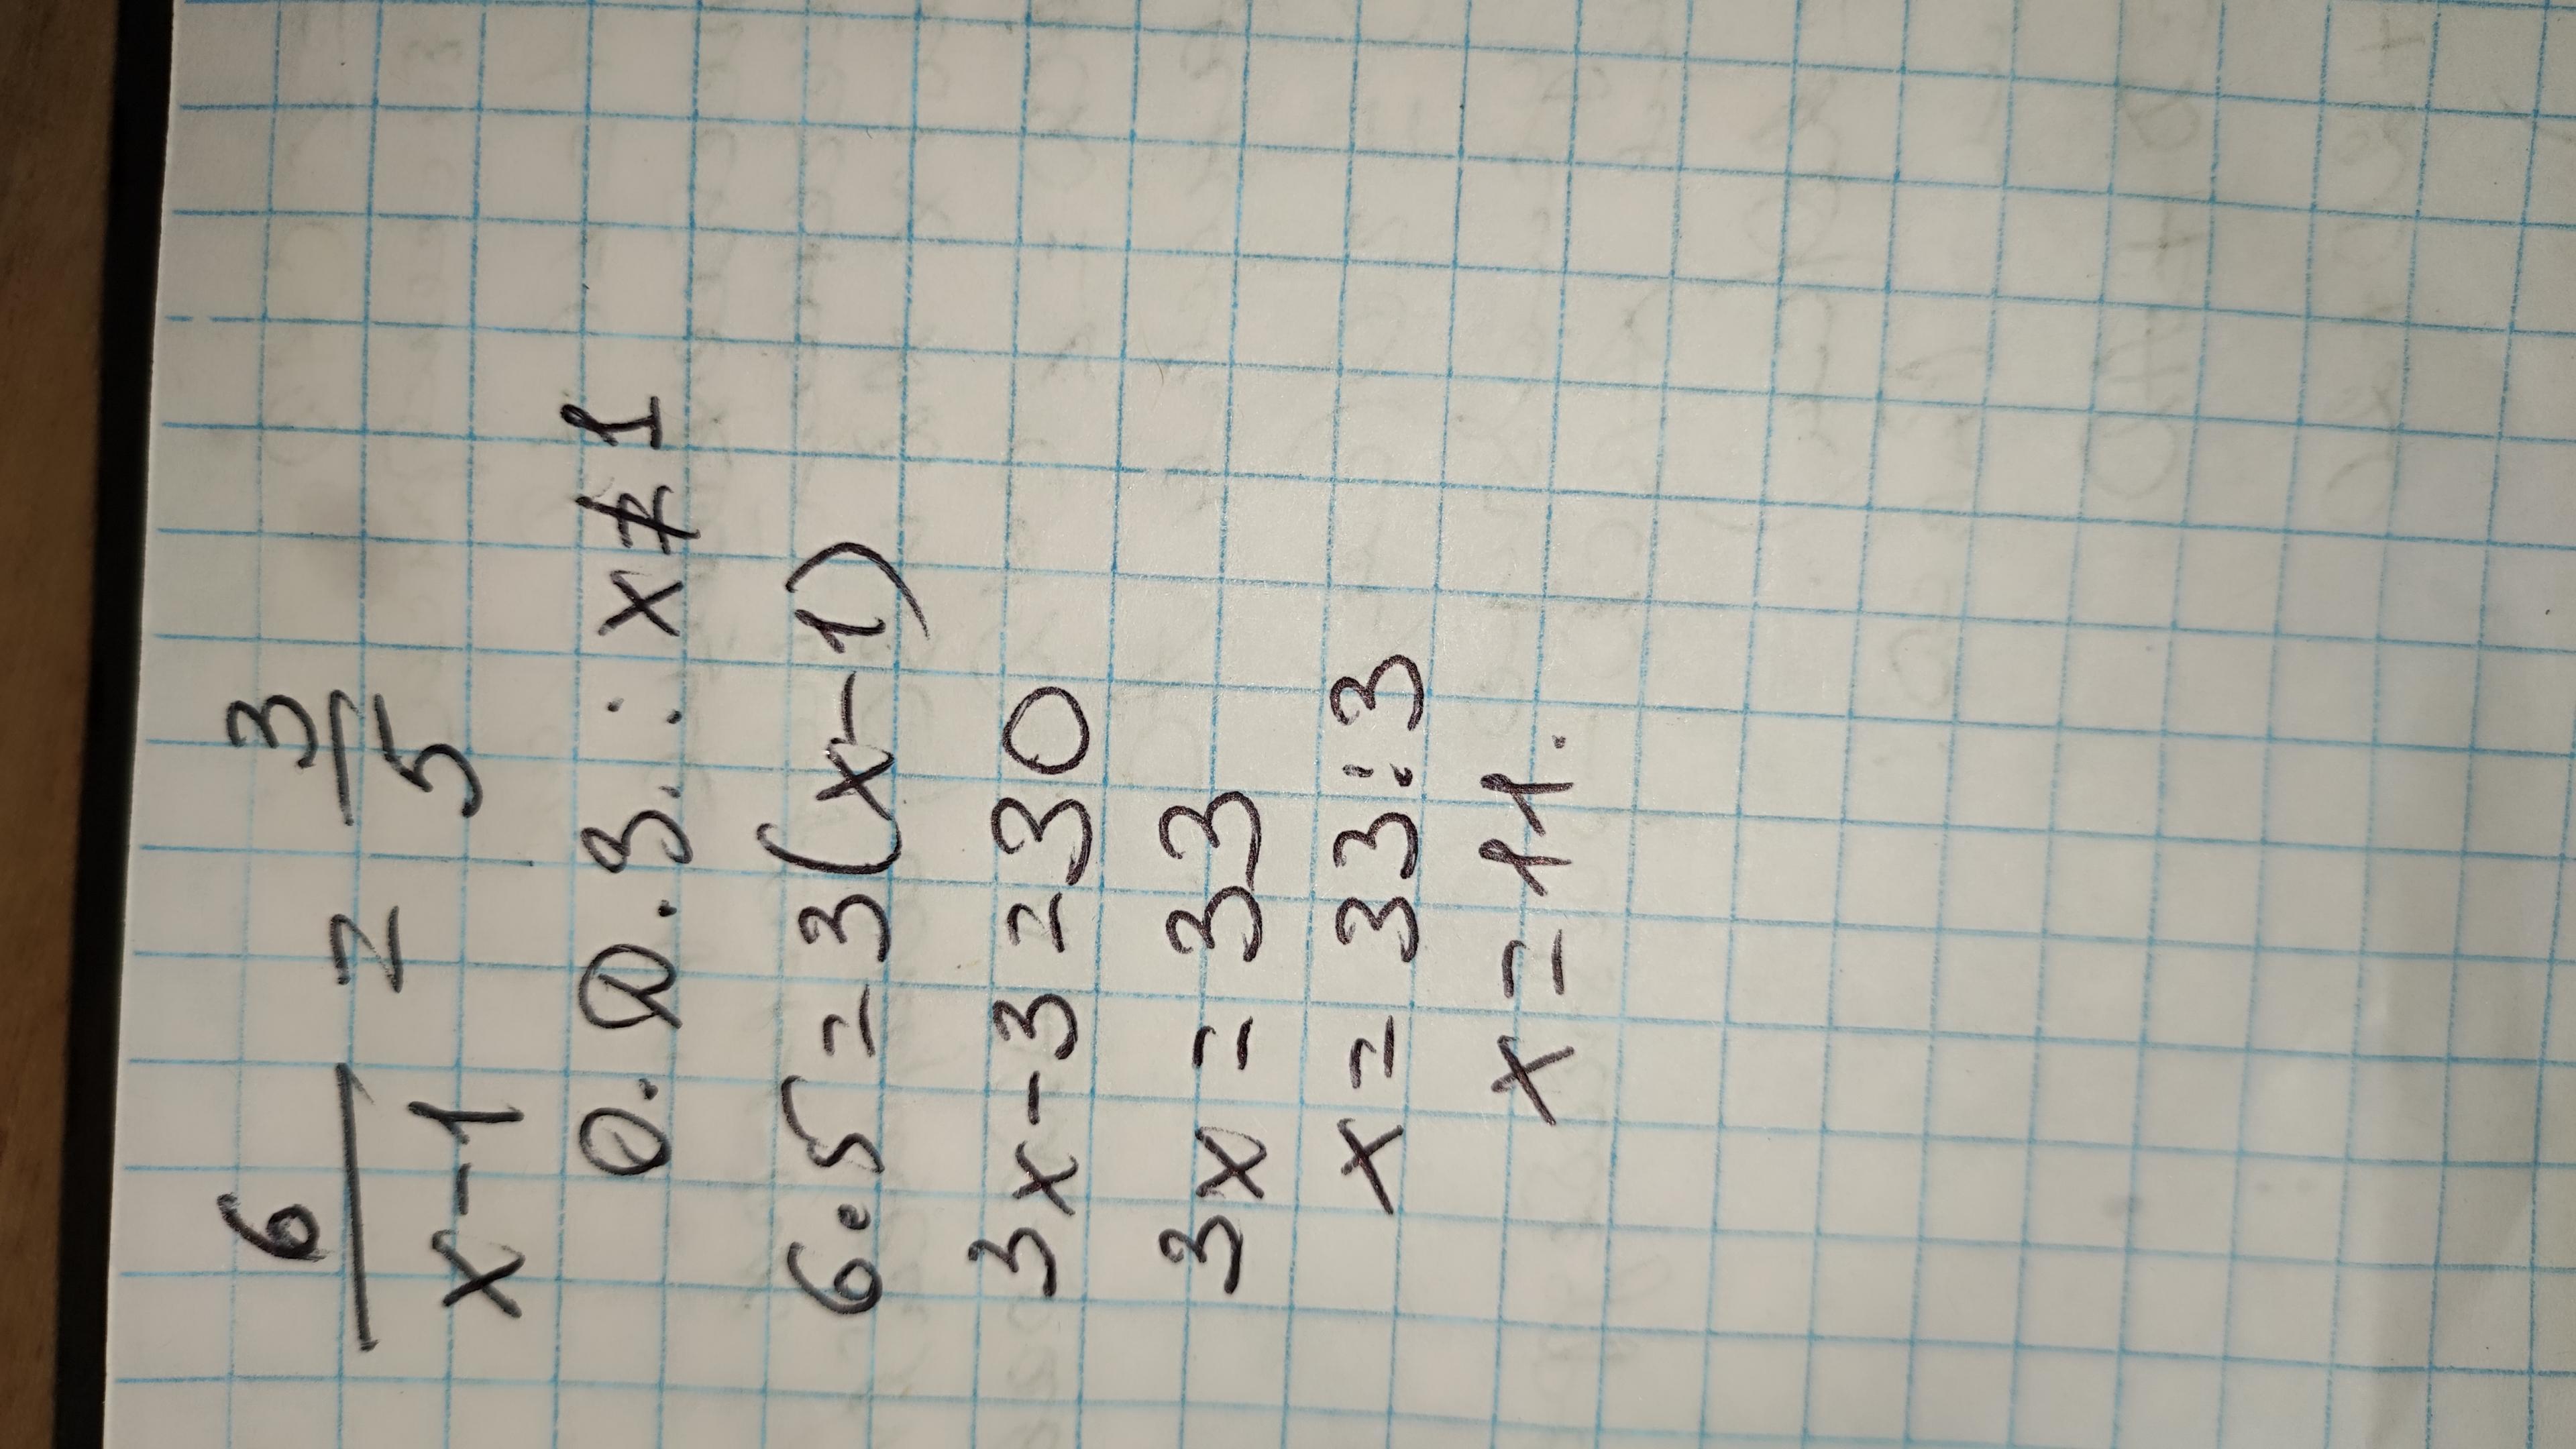 6/(x-1) = 3/5
О.Д.З.: x ≠ 1
6·5 = 3(x-1)
3x-3=30
3x = 33
x = 33:3
x = 11.